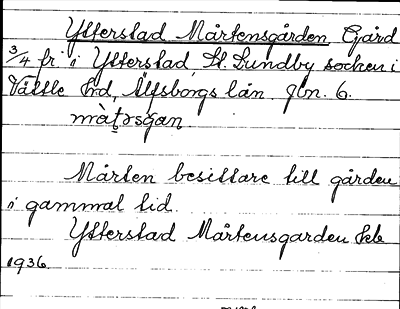 Ytterstad Mårtensgården Gård
3/4 fr i Ytterstad St. Lundby socken i
Vättle hd, Älfsborgs län. Jbn. 6.
màt̲ɜsgan.
Mårten besittare till gården
i gammal tid.
Ytterstad Mårtensgarden Skb
1936.